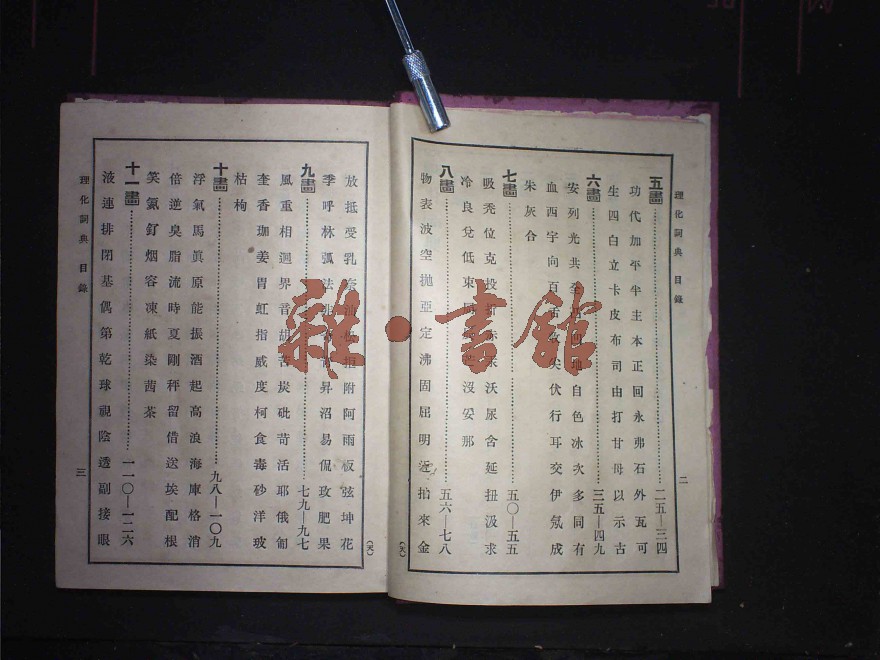 理化詞典 目錄
二
五畫 二五—三四
功代加平半主本正回永弗石外瓦可
生四白立卡皮布司由打甘母以示古
六畫 三五—四九
安列光共全地自色冰次多同有
血西宇向百尖伏行耳交伊氖成
朱灰合
七畫 五〇—五五
吸禿位克投沃尿含延扭汲求
冷良兌低束沒妥那
八畫 五六—七八
物表波空拋亞定沸固屈明近拍來金
放抵受乳附阿雨板弦坤花
季呼林弧法昇沼易侃玫肥果
九畫 七九—九七
風重相迴界音胡苦炭砒苛活耶俄
奎香珈姜冑虹指威度柯食毒砂洋玻
枯枸
十畫 九八—一〇九
浮氣馬眞原能振酒起高浪海庫格消
倍逆臭脂流時夏剛秤留借送埃配根
笑氬釕烟容凍紙染茜茶
十一畫 一一〇—一二六
液連排閉基偶第乾球視陰透副接眼
理化詞典 目錄
三
雜·書館